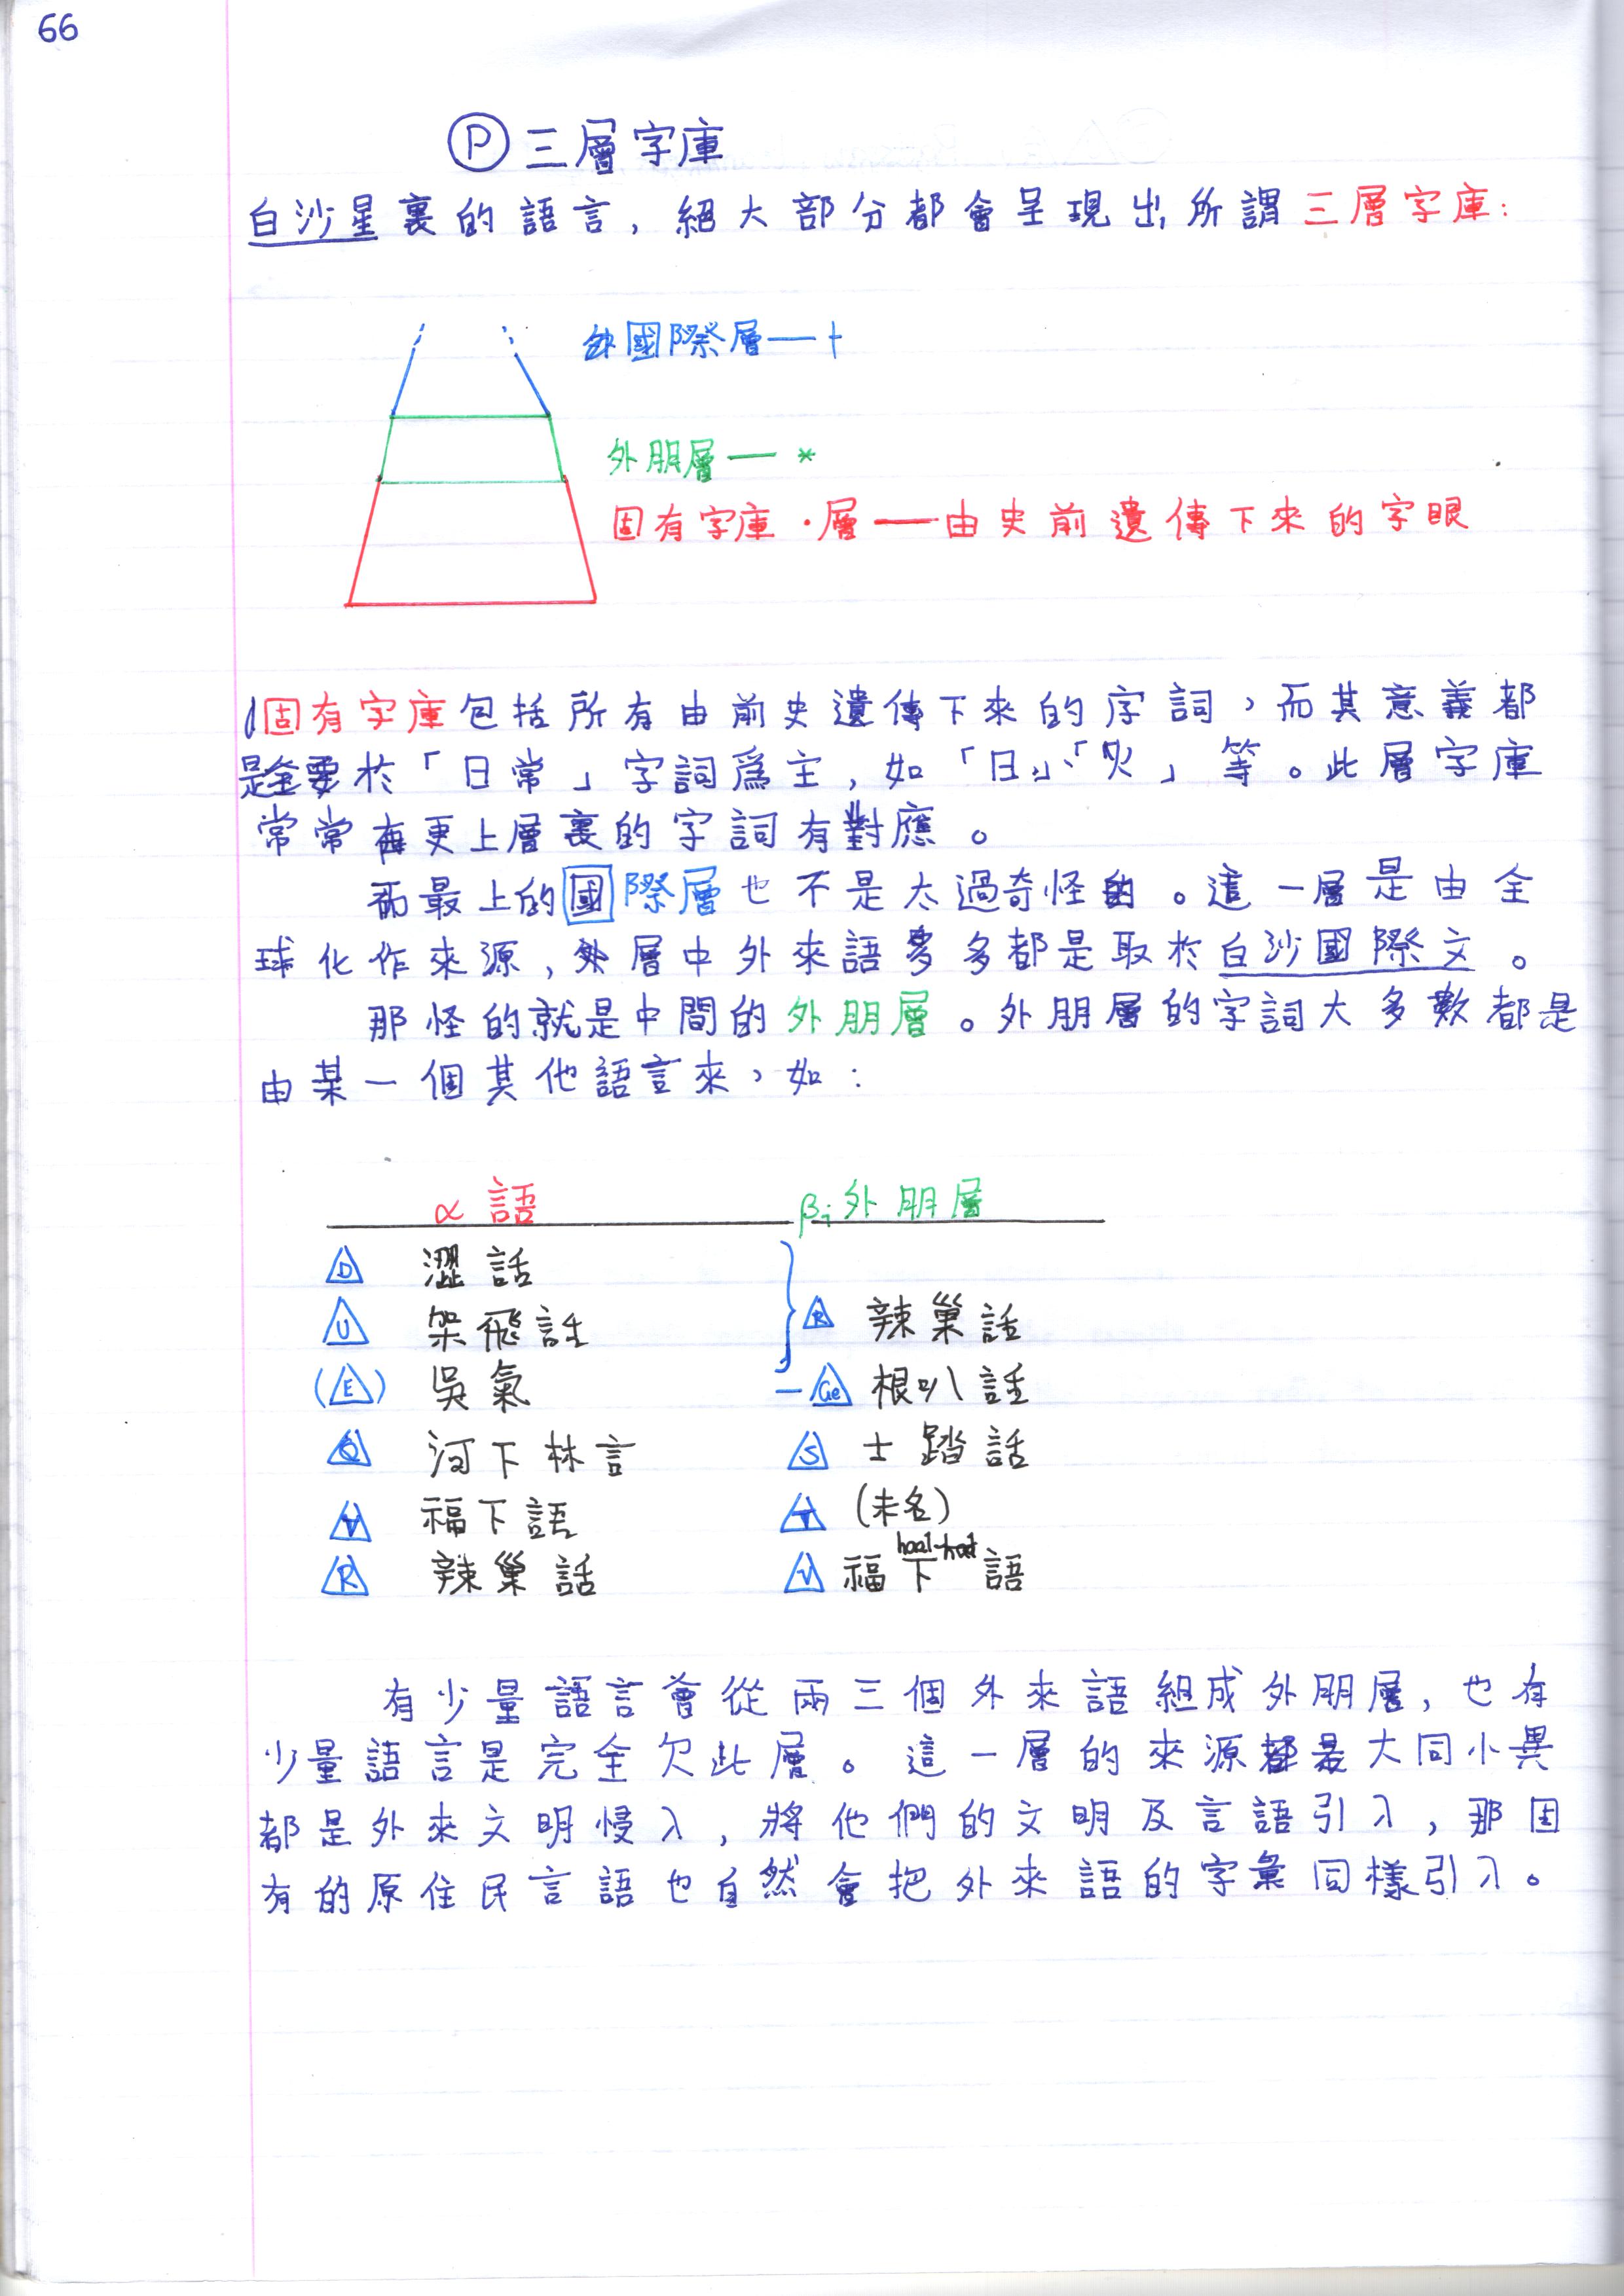 66
Ⓟ 三層字庫
白沙星裏的語言，絕大部分都會呈現出所謂三層字庫：
國際層——†
外朋層——*
固有字庫·層——由史前遺傳下來的字眼
固有字庫包括所有由前史遺傳下來的字詞，而其意義都
是全要於「日常」字詞爲主，如「日」、「火」等。此層字庫
常常在更上層裏的字詞有對應。
而最上的國際層也不是太過奇怪的。這一層是由全
球化作來源，外層中外來語多多都是取於白沙國際文。
那怪的就是中間的外朋層。外朋層的字詞大多數都是
由某一個其他語言來，如：
α語 βi外朋層
D 澀話
U 架飛話 R 辣巢話
(E) 吳氣 — Ge 根叭話
Q 河下林言 S 士踏話
V 福下語 T (未名)
R 辣巢話 V 福下語
有少量語言會從兩三個外來語組成外朋層，也有
少量語言是完全欠此層。這一層的來源都是大同小異
都是外來文明侵入，將他們的文明及言語引入，那固
有的原住民言語也自然會把外來語的字彙同樣引入。